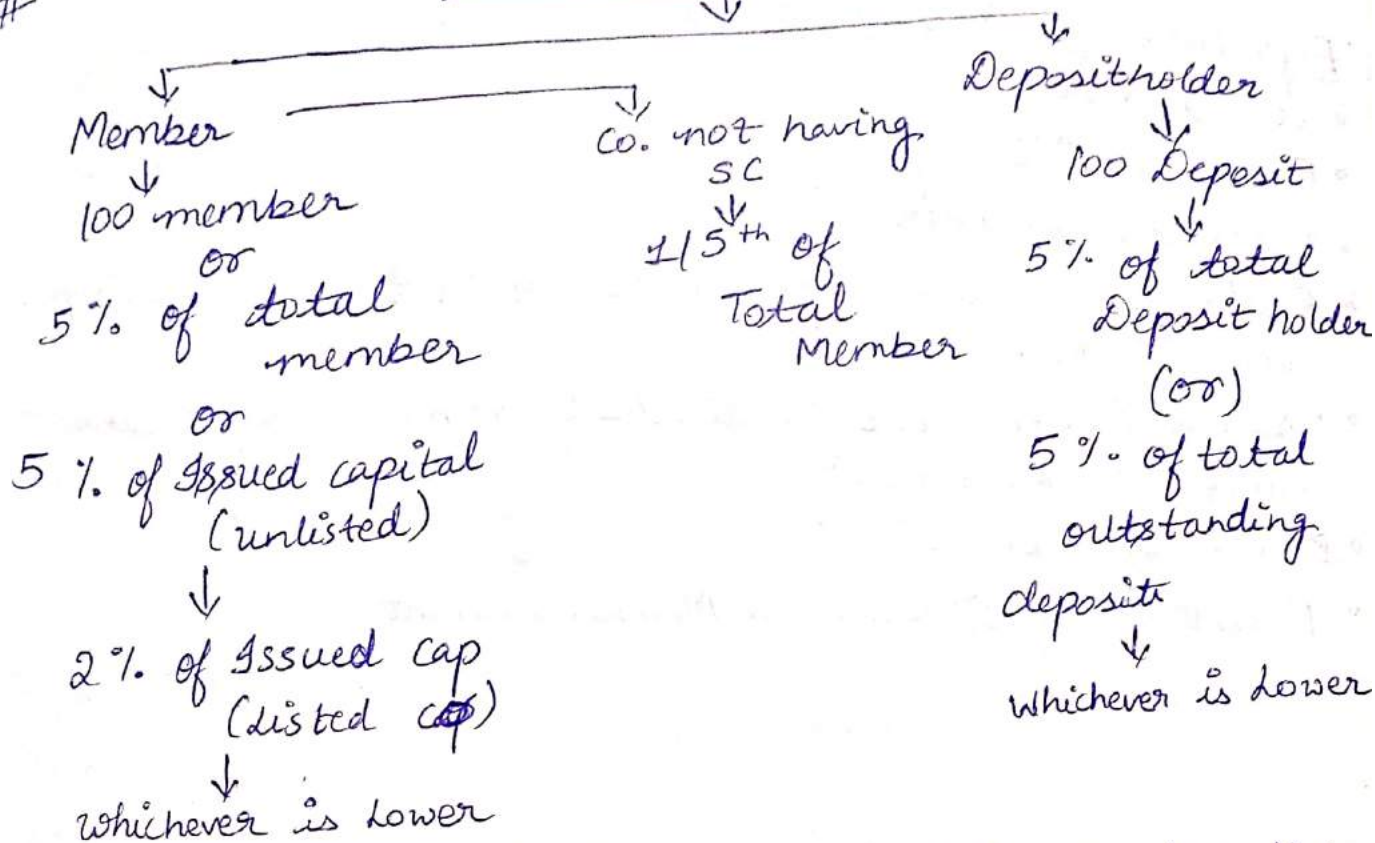 #
Member
100 member
or
5 % of total
member
or
5 % of Issued capital
(unlisted)
2 % of Issued cap
(Listed co)
whichever is Lower
Co. not having
SC
1/5th of
Total
Member
Depositholder
100 Deposit
5 % of total
Deposit holder
(or)
5 % of total
outstanding
deposit
whichever is Lower